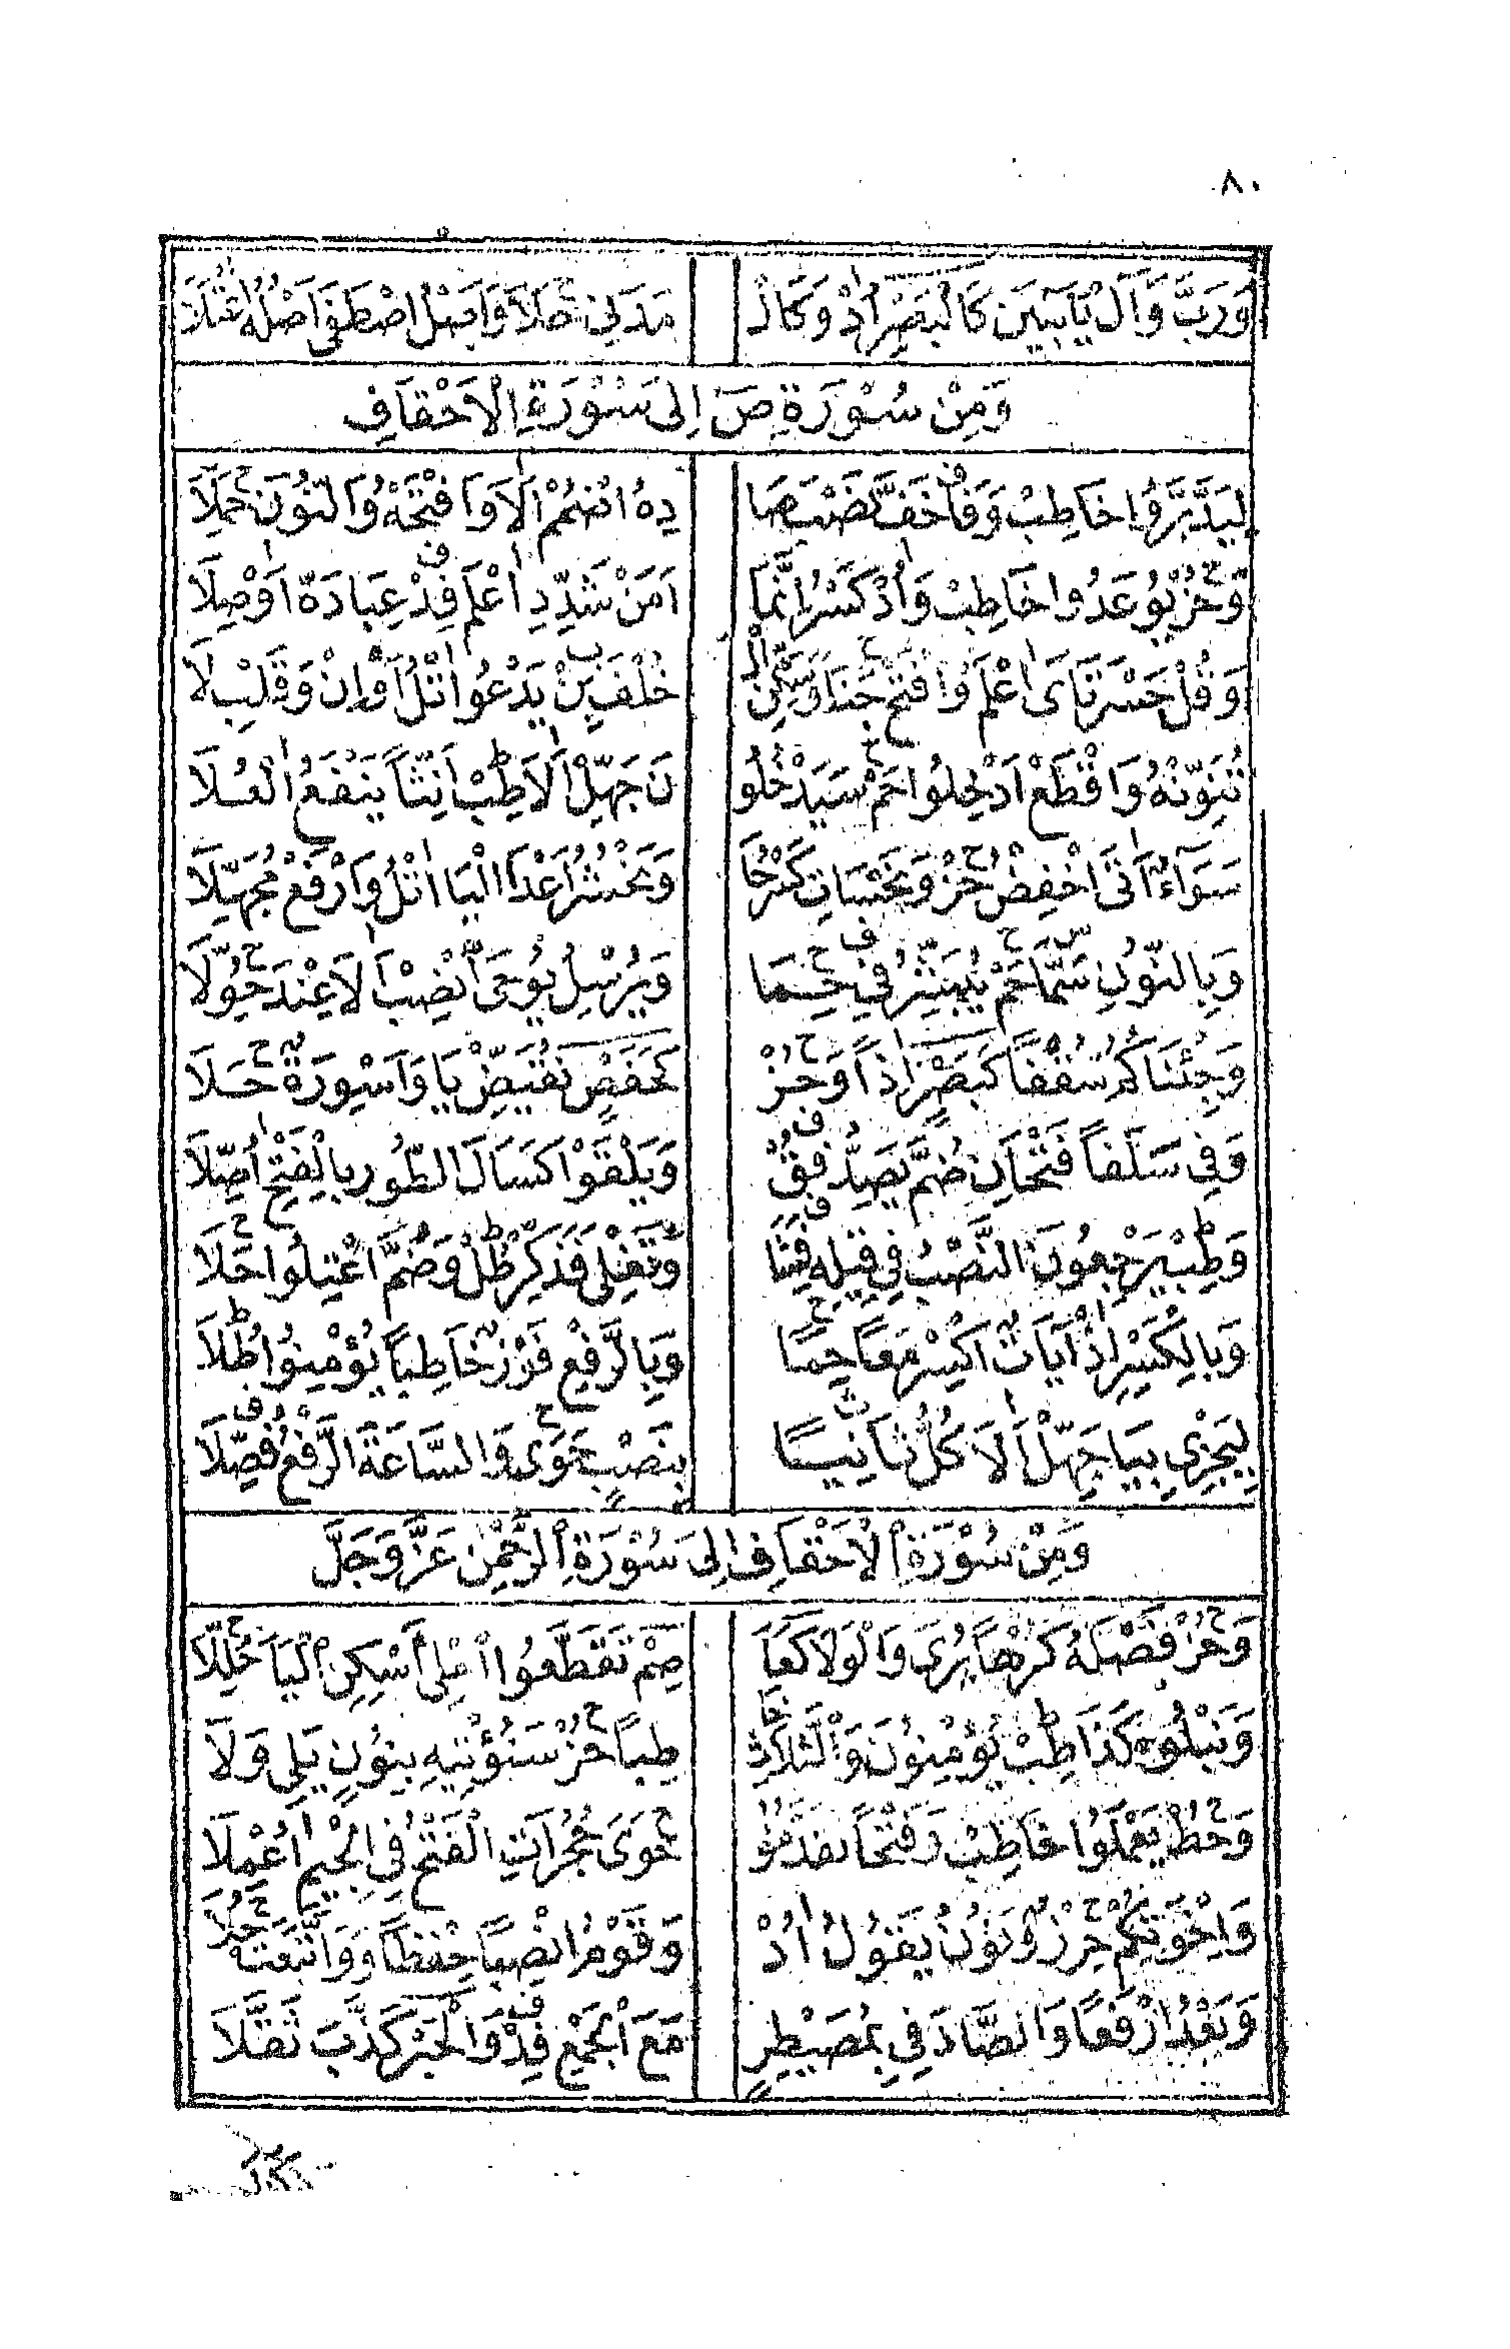 ٨٠
وَرَبَّ وَآلِ يَاسِينَ كَالْبَصْرِ أُدْ وَكَالْـ مَدَنِي حَلَا وَابْسُلِ اصْطَفَى أَصْلُهُ اعْتَلَا
وَمِنْ سُوْرَةِ صَ اِلَى سُوْرَةِ الْاَحْقَافِ
لِيَدَّبَّرُوا خَاطِبْ وَفَا خَفَّ نُصْبٍ صَا دِهُ اضْمُمْ أَلَا وَافْتَحْهُ وَالنُّونَ حُمِّلَا
وَحُزْ يُوعَدُوا خَاطِبْ وَأُدْ كَسْرَ أَنَّمَا اَمَنْ شَدِّدِ اعْلَمْ فِدْ عِبَادَهُ اَوْصِلَا
وَقُلْ حَسْرَتَاىَ اعْلَمْ وَفَتْحٌ جَنَا وَسَكِّنِ الْـ خُلْفَ بِنْ يَدْعُوا اتْلُ أَوْ أَنْ وَقَلْبِ لَا
تُنَوِّنْهُ وَاقْطَعْ اَدْخِلُوا حُمْ سَيَدْخُلُو نَ جَهِّلْ اَلَا طِبْ اَنِّثَا يَنْفَعُ الْعُلَا
سَوَاءٌ اَتَى اخْفِضْ حُزْ وَنَحْسَاتِ كَسْرُحَا وَنَحْشُرُ اَعْدَا الْيَا اتْلُ وَارْفَعْ مُجَهِّلَا
وَبِالنُّونِ سَمَّى حُمْ يُبَشِّرُ فِي حِمَا وَيُرْسِلُ يُوحَى انْصِبْ اَلَا عِنْدَ حُوِّلَا
وَجِئْنَاكُمُ سُقْفًا كَبَصْرٍ اِذًا وَحُزْ كَحَفْصٍ نُقَيِّضْ يَا وَاَسْوِرَةٌ حَلَا
وَفِي سَلَفًا فَتْحَانِ ضُمَّ يَصِدُّ فُقْ وَيَلْقَوْا كَسَالَ الطُّورِ بِالْفَتْحِ اُصِّلَا
وَطِبْ يَرْجِعُونَ النَّصْبُ فِي قِيلِهِ فَشَا وَتَغْلِي فَذَكِّرْ طُلْ وَضُمَّ اعْتِلُوا حَلَا
وَبِالْكَسْرِ اِذْ آيَاتٌ اكْسِرْ مَعًا حِمًا وَبِالرَّفْعِ فَوْزٌ خَاطِبًا يُؤْمِنُوا طُلَا
لِيَجْزِي بِيَا جَهِّلْ اَلَا كُلُّ ثَانِيًا بِنَصْبٍ حَوَى وَالسَّاعَةَ الرَّفْعُ فُصِّلَا
وَمِنْ سُوْرَةِ الْاَحْقَافِ اِلَى سُوْرَةِ الرَّحْمٰنِ عَزَّ وَجَلَّ
وَحُزْ فَصْلُهُ كُرْهًا يُرَى وَالْوَلَا كَعَا صِمْ تَقْطَعُوا اُمْلِى اَسْكِنِ الْيَاءَ حُلِّلَا
وَنَبْلُوَ كَذَا طِبْ يُؤْمِنُونَ وَالثَّلَاثَ خَا طِبًا حُزْ سَنُؤْتِيهِ بِنُونٍ يَلِي وِلَا
وَحُطْ يَعْمَلُوا خَاطِبْ وَفَتْحًا تَقَدَّمُوْ حَوَى حُجُرَاتِ الْفَتْحُ فِي الْجِيمِ اُعْمِلَا
وَاِخْوَتِكُمْ حِرْزٌ وَنُوْنُ يَقُولُ اُدْ وَقَوْمِ انْصِبًا حِفْظًا وَوَاتَّبَعَتْ حَلَا
وَبَعْدُ ارْفَعًا وَالصَّادَ فِي بِمُصَيْطِرٍ مَعَ الْجَمْعِ فِدْ وَالْحَبْرُ كَذَّبَ ثَقَّلَا